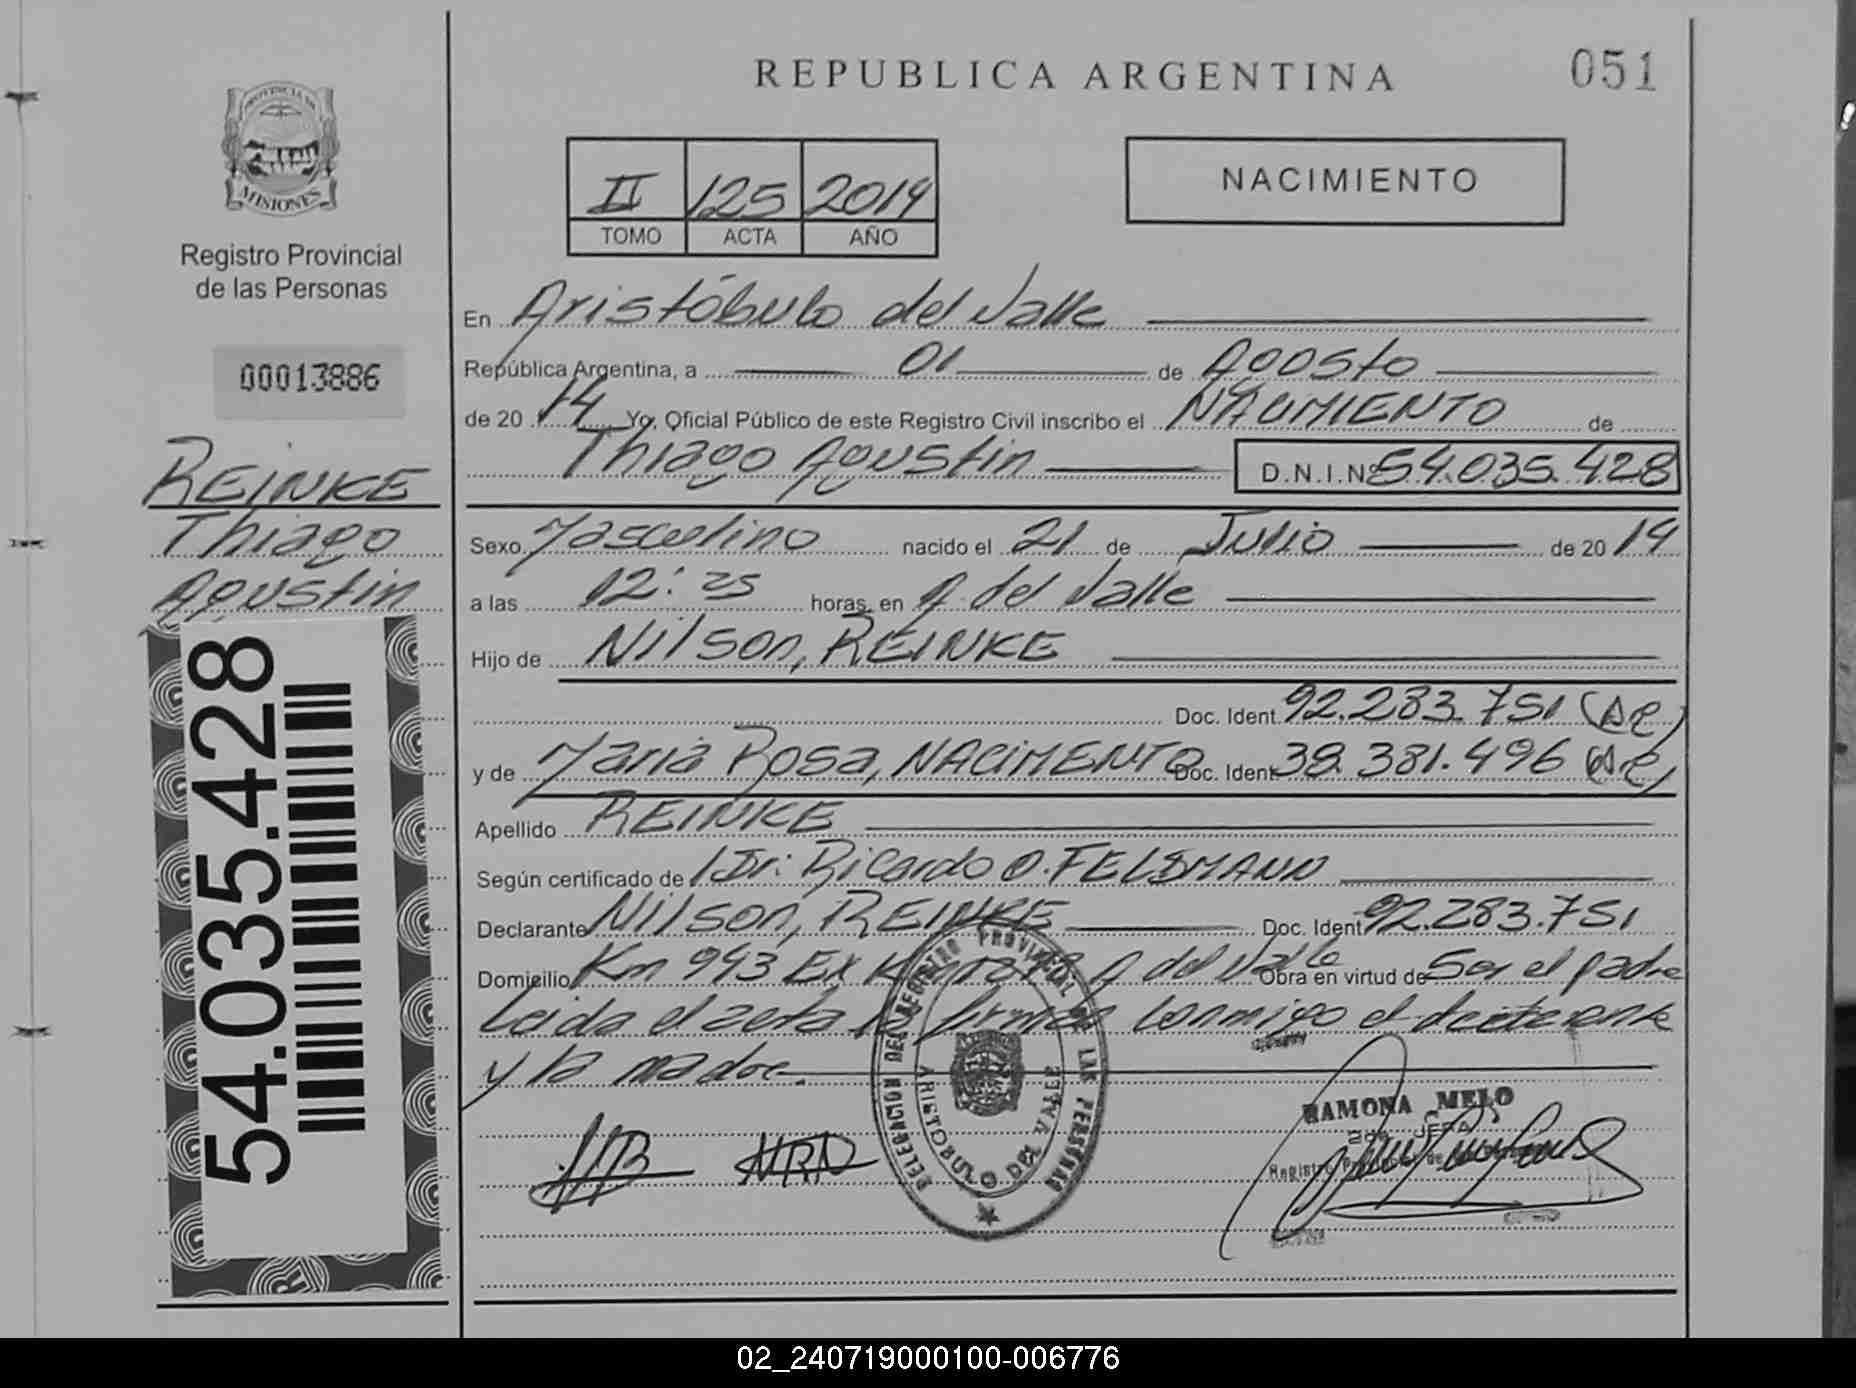 REPUBLICA ARGENTINA
051
PROVINCIA DE
MISIONES
Registro Provincial
de las Personas
00013886
REINKE
Thiago
Agustin
54.035.428
II 125 2014
TOMO ACTA AÑO
NACIMIENTO
En Aristóbulo del Valle
República Argentina, a 01 de Agosto
de 2014 Yo, Oficial Público de este Registro Civil inscribo el NACIMIENTO de
Thiago Agustin D.N.I.Nº 54.035.428
Sexo Masculino nacido el 21 de Julio de 2014
a las 12:25 horas, en A. del Valle
Hijo de Nilson, REINKE
Doc. Ident. 92.283.751
y de Maria Rosa, NACIMENTO Doc. Ident. 38.381.496
Apellido REINKE
Según certificado de Dr. Ricardo O. FELDMANN
Declarante Nilson, REINKE Doc. Ident. 92.283.751
Domicilio Km 943 Ex A del Valle Obra en virtud de Ser el padre
Leida el acta la firman conmigo el declarante
y la madre.
DELEGACION DEL REGISTRO PROVINCIAL DE LAS PERSONAS
ARISTOBULO DEL VALLE
RAMONA MELO
2da. JEFA
Registro Provincial de
02_240719000100-006776